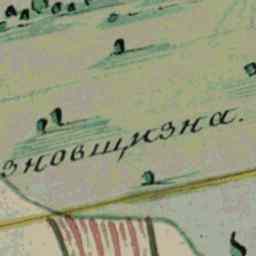 зновщизна.